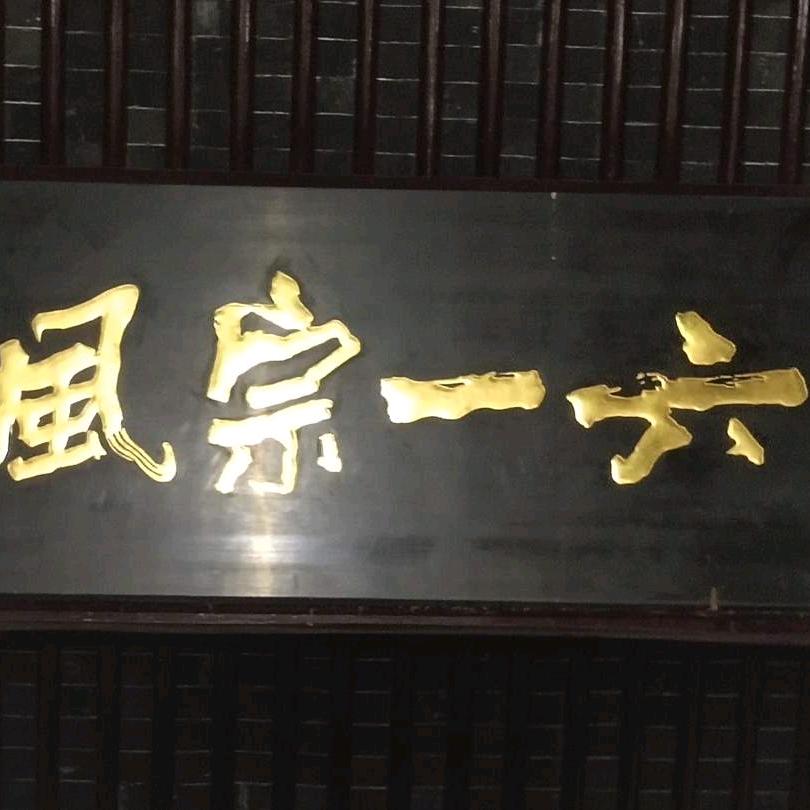 六一宗風